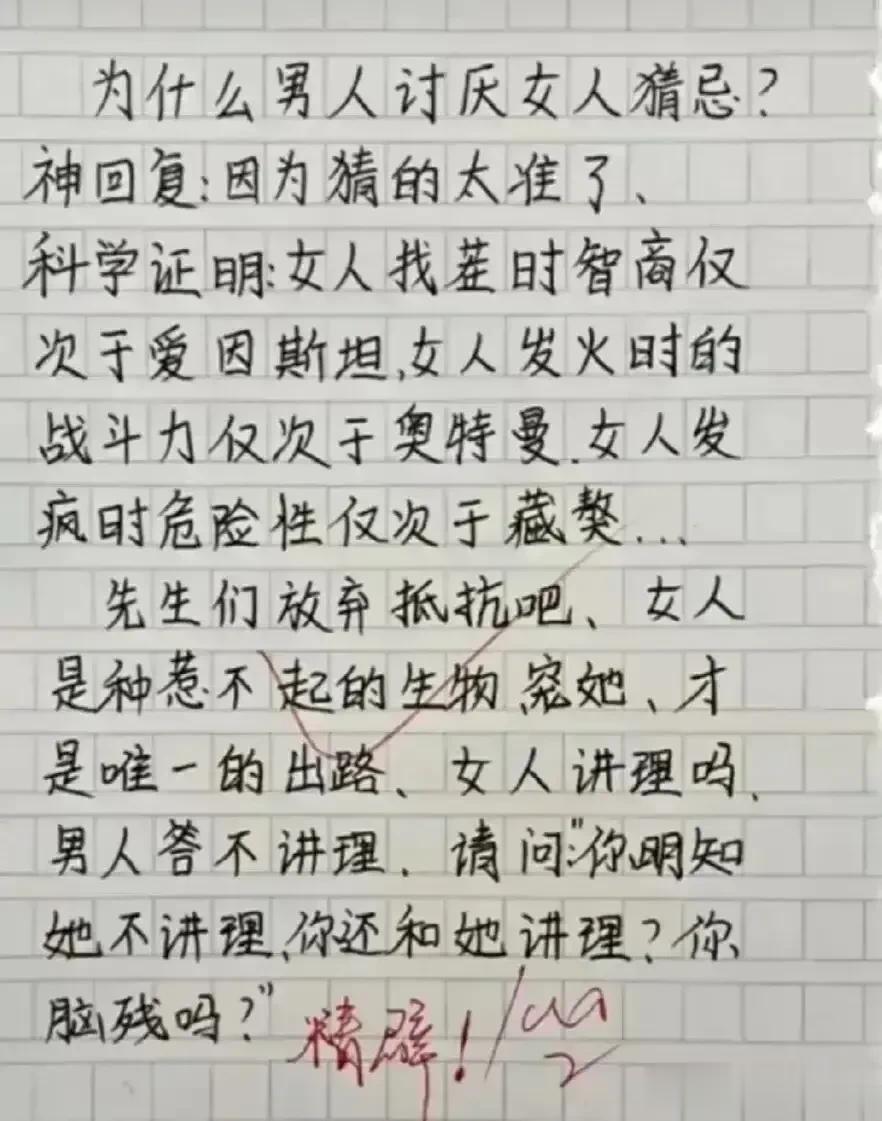 为什么男人讨厌女人猜忌?
神回复:因为猜的太准了、
科学证明:女人找茬时智商仅
次于爱因斯坦,女人发火时的
战斗力仅次于奥特曼.女人发
疯时危险性仅次于藏獒...
先生们放弃抵抗吧、女人
是种惹不起的生物,宠她、才
是唯一的出路、女人讲理吗.
男人答不讲理.请问:"你明知
她不讲理,你还和她讲理?你
脑残吗?"
精辟!